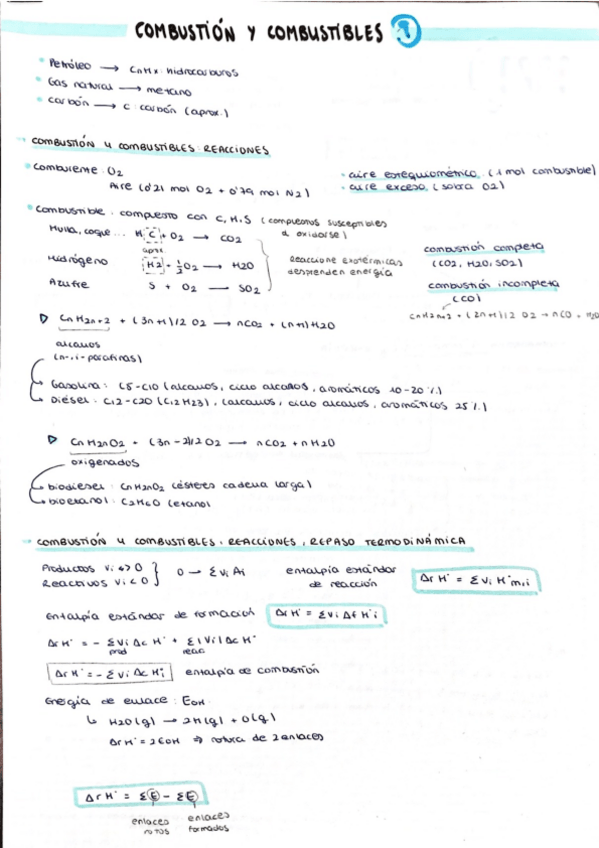 COMBUSTIÓN Y COMBUSTIBLES 1
• Petróleo → CnHx: hidrocarburos
• Gas natural → metano
• Carbón → C: carbón (aprox.)
COMBUSTIÓN Y COMBUSTIBLES: REACCIONES
• Comburente: O2
Aire (0'21 mol O2 + 0'79 mol N2)
• aire estequiométrico. (1 mol combustible)
• aire exceso. (sobra O2)
• Combustible: compuesto con C, H, S (compuestos susceptibles d oxidarse)
Hulla, coque... H C + O2 → CO2
aprox.
Hidrógeno H2 + 1/2 O2 → H2O
Azufre S + O2 → SO2
Reacciones exotérmicas
desprenden energía
combustión completa
(CO2, H2O, SO2)
combustión incompleta
(CO)
CnH2n+2 + (2n+1)/2 O2 → nCO + H2O
▷ CnH2n+2 + (3n+1)/2 O2 → nCO2 + (n+1)H2O
alcanos
(n-, i-parafinas)
Gasolina: C5-C10 (alcanos, ciclo alcanos, aromáticos 10-20%)
Diésel: C12-C20 (C12H23), (alcanos, ciclo alcanos, aromáticos 25%)
▷ CnH2nO2 + (3n-2)/2 O2 → nCO2 + nH2O
oxigenados
biodiesel: CnH2nO2 (ésteres cadena larga)
bioetanol: C2H6O (etanol)
COMBUSTIÓN Y COMBUSTIBLES: REACCIONES, REPASO TERMODINÁMICA
Productos Vi > 0
Reactivos Vi < 0
0 → ΣVi Ai
entalpía estándar
de reacción
ΔrH° = ΣVi H°m,i
Entalpía estándar de formación ΔrH° = ΣVi ΔfH°i
ΔrH° = - ΣVi ΔcH° + Σ|Vi| ΔcH°
prod reac
ΔrH° = - ΣVi ΔcH°i entalpía de combustión
Energía de enlace: EOH
↳ H2O(g) → 2H(g) + O(g)
ΔrH° = 2EOH ⇒ rotura de 2 enlaces
ΔrH° = ΣE - ΣE
enlaces rotos
enlaces formados